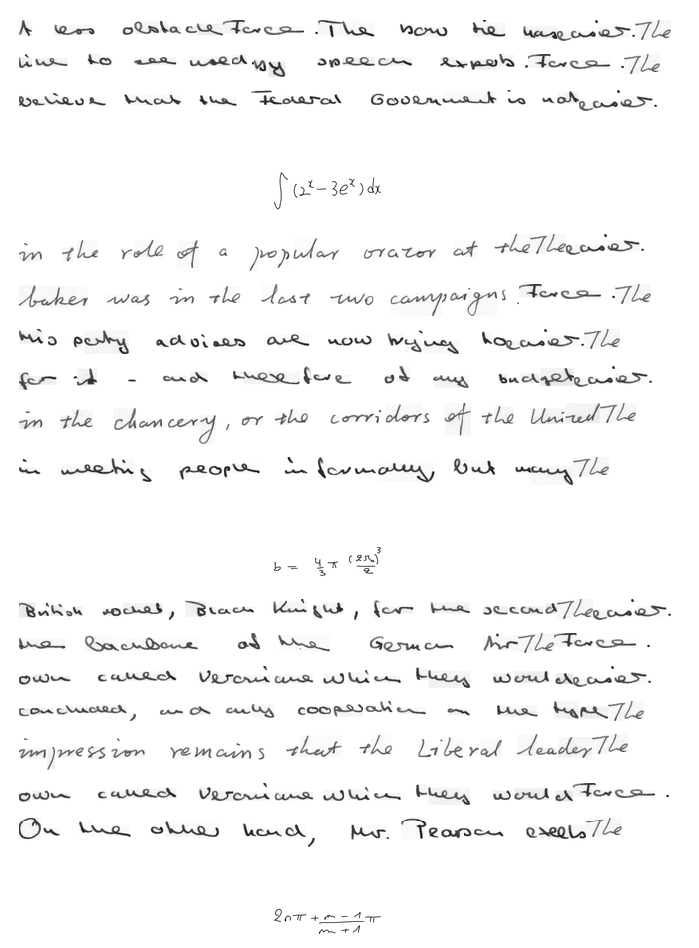 A less obstacle Force . The now tie was easier . The
line to see used by speech expets . Force . The
believe that the Federal Government is not easier .
∫ (2^x - 3e^x) dx
in the role of a popular orator at the The easier .
baker was in the last two campaigns . Force . The
His party advises are now trying to easier . The
for it - and therefore of any budget easier .
in the chancery , or the corridors of the United The
in meeting people informally , but many The
b = \frac{4}{3} π \frac{(2π_0)^3}{2}
British rocket , Black Knight , for the second The easier .
the backbone of the German Air The Force .
own called Veroniane which they would easier .
concluded , and only cooperation on the type The
impression remains that the Liberal leader The
own called Veroniane which they would Force .
On the other hand , Mr. Pearson excels The
2nπ + \frac{m - 1}{m + 1} π